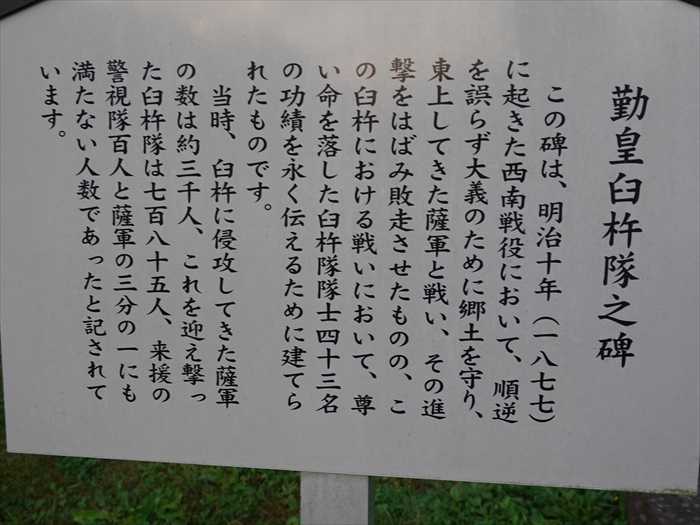 勤皇臼杵隊之碑
この碑は、明治十年（一八七七）
に起きた西南戦役において、順逆
を誤らず大義のために郷土を守り、
東上してきた薩軍と戦い、その進
撃をはばみ敗走させたものの、こ
の臼杵における戦いにおいて、尊
い命を落した臼杵隊隊士四十三名
の功績を永く伝えるために建てら
れたものです。
当時、臼杵に侵攻してきた薩軍
の数は約三千人、これを迎え撃っ
た臼杵隊は七百八十五人、来援の
警視隊百人と薩軍の三分の一にも
満たない人数であったと記されて
います。